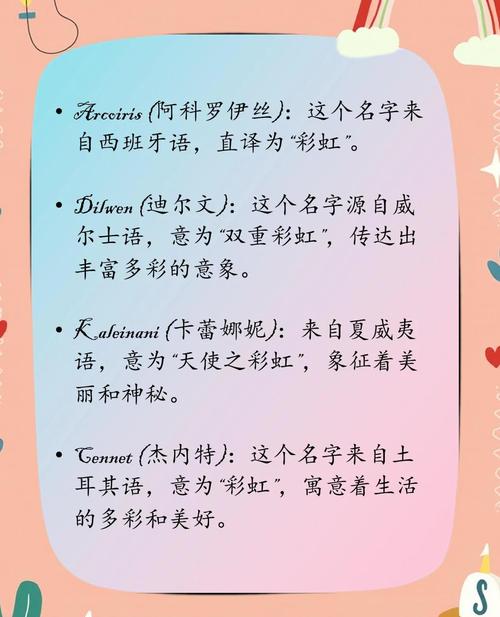 • Arcoiris (阿科罗伊丝)：这个名字来
自西班牙语，直译为“彩虹”。
• Dilwen (迪尔文)：这个名字源自威
尔士语，意为“双重彩虹”，传达出
丰富多彩的意象。
• Kaleinani (卡蕾娜妮)：来自夏威夷
语，意为“天使之彩虹”，象征着美
丽和神秘。
• Cennet (杰内特)：这个名字来自土
耳其语，意为“彩虹”，寓意着生活
的多彩和美好。
S